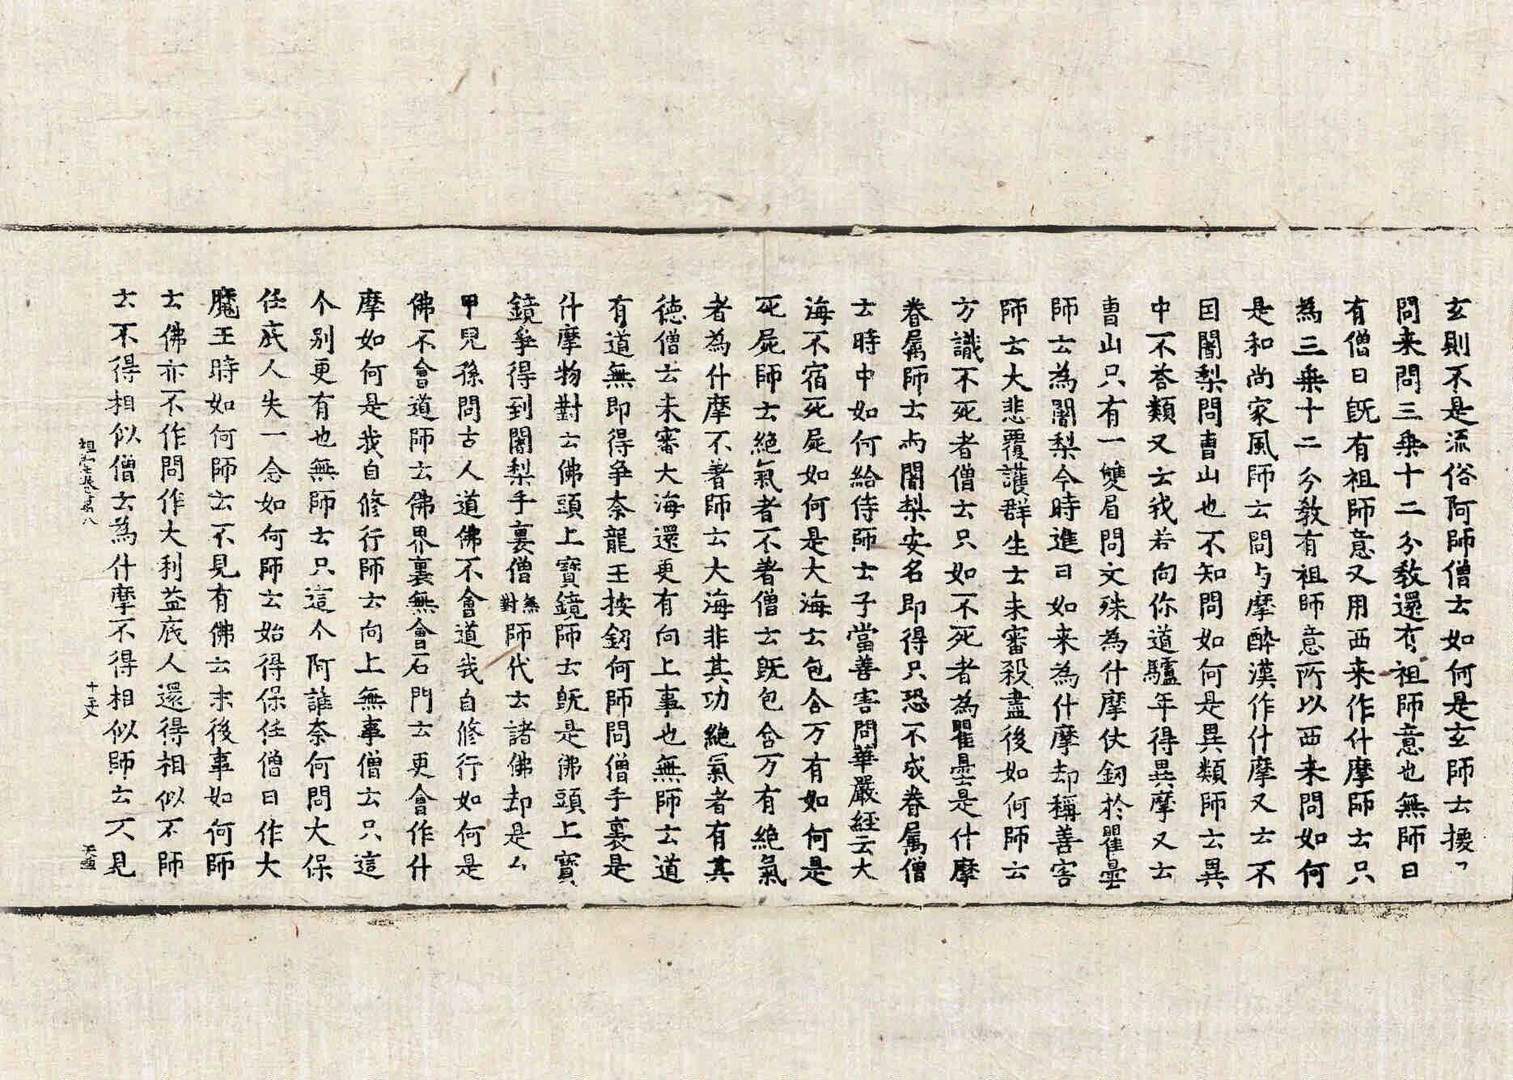 玄則不是流俗阿師僧士如何是玄師士援〻
問来問三乗十二分教還有祖師意也無師曰
有僧曰旣有祖師意又用西来作什摩師士只
為三乗十二分教有祖師意所以西来問如何
是和尚家風師士問与摩酔漢作什摩又士不
因闍梨問曺山也不知問如何是異類師士異
中不荅類又士我若向你道驢年得異摩又士
曺山只有一雙眉問文殊為什摩仗釼於瞿曇
師士為闍梨今時進曰如来為什摩却稱善害
師士大悲覆護群生士未審殺盡後如何師士
方識不死者僧士只如不死者為瞿曇是什摩
眷属師士与闍梨安名即得只恐不成眷属僧
士時中如何給侍師士子當善害問華嚴経云大
海不宿死屍如何是大海士包含万有如何是
死屍師士絶氣者不著僧士旣包含万有絶氣
者為什摩不著師士大海非其功絶氣者有其
徳僧士未審大海還更有向上事也無師士道
有道無即得爭奈龍王按釼何師問僧手裏是
什摩物對士佛頭上寶鏡師士旣是佛頭上寶
鏡爭得到闍梨手裏僧無對師代士諸佛却是厶
甲兒孫問古人道佛不會道我自修行如何是
佛不會道師士佛界裏無會石門士更會作什
摩如何是我自修行師士向上無事僧士只這
个別更有也無師士只這个阿誰奈何問大保
任底人失一念如何師士始得保任僧曰作大
魔王時如何師士不見有佛士末後事如何師
士佛亦不作問作大利益底人還得相似不師
士不得相似僧士為什摩不得相似師士不見
祖堂卷第八
十二丈
天画